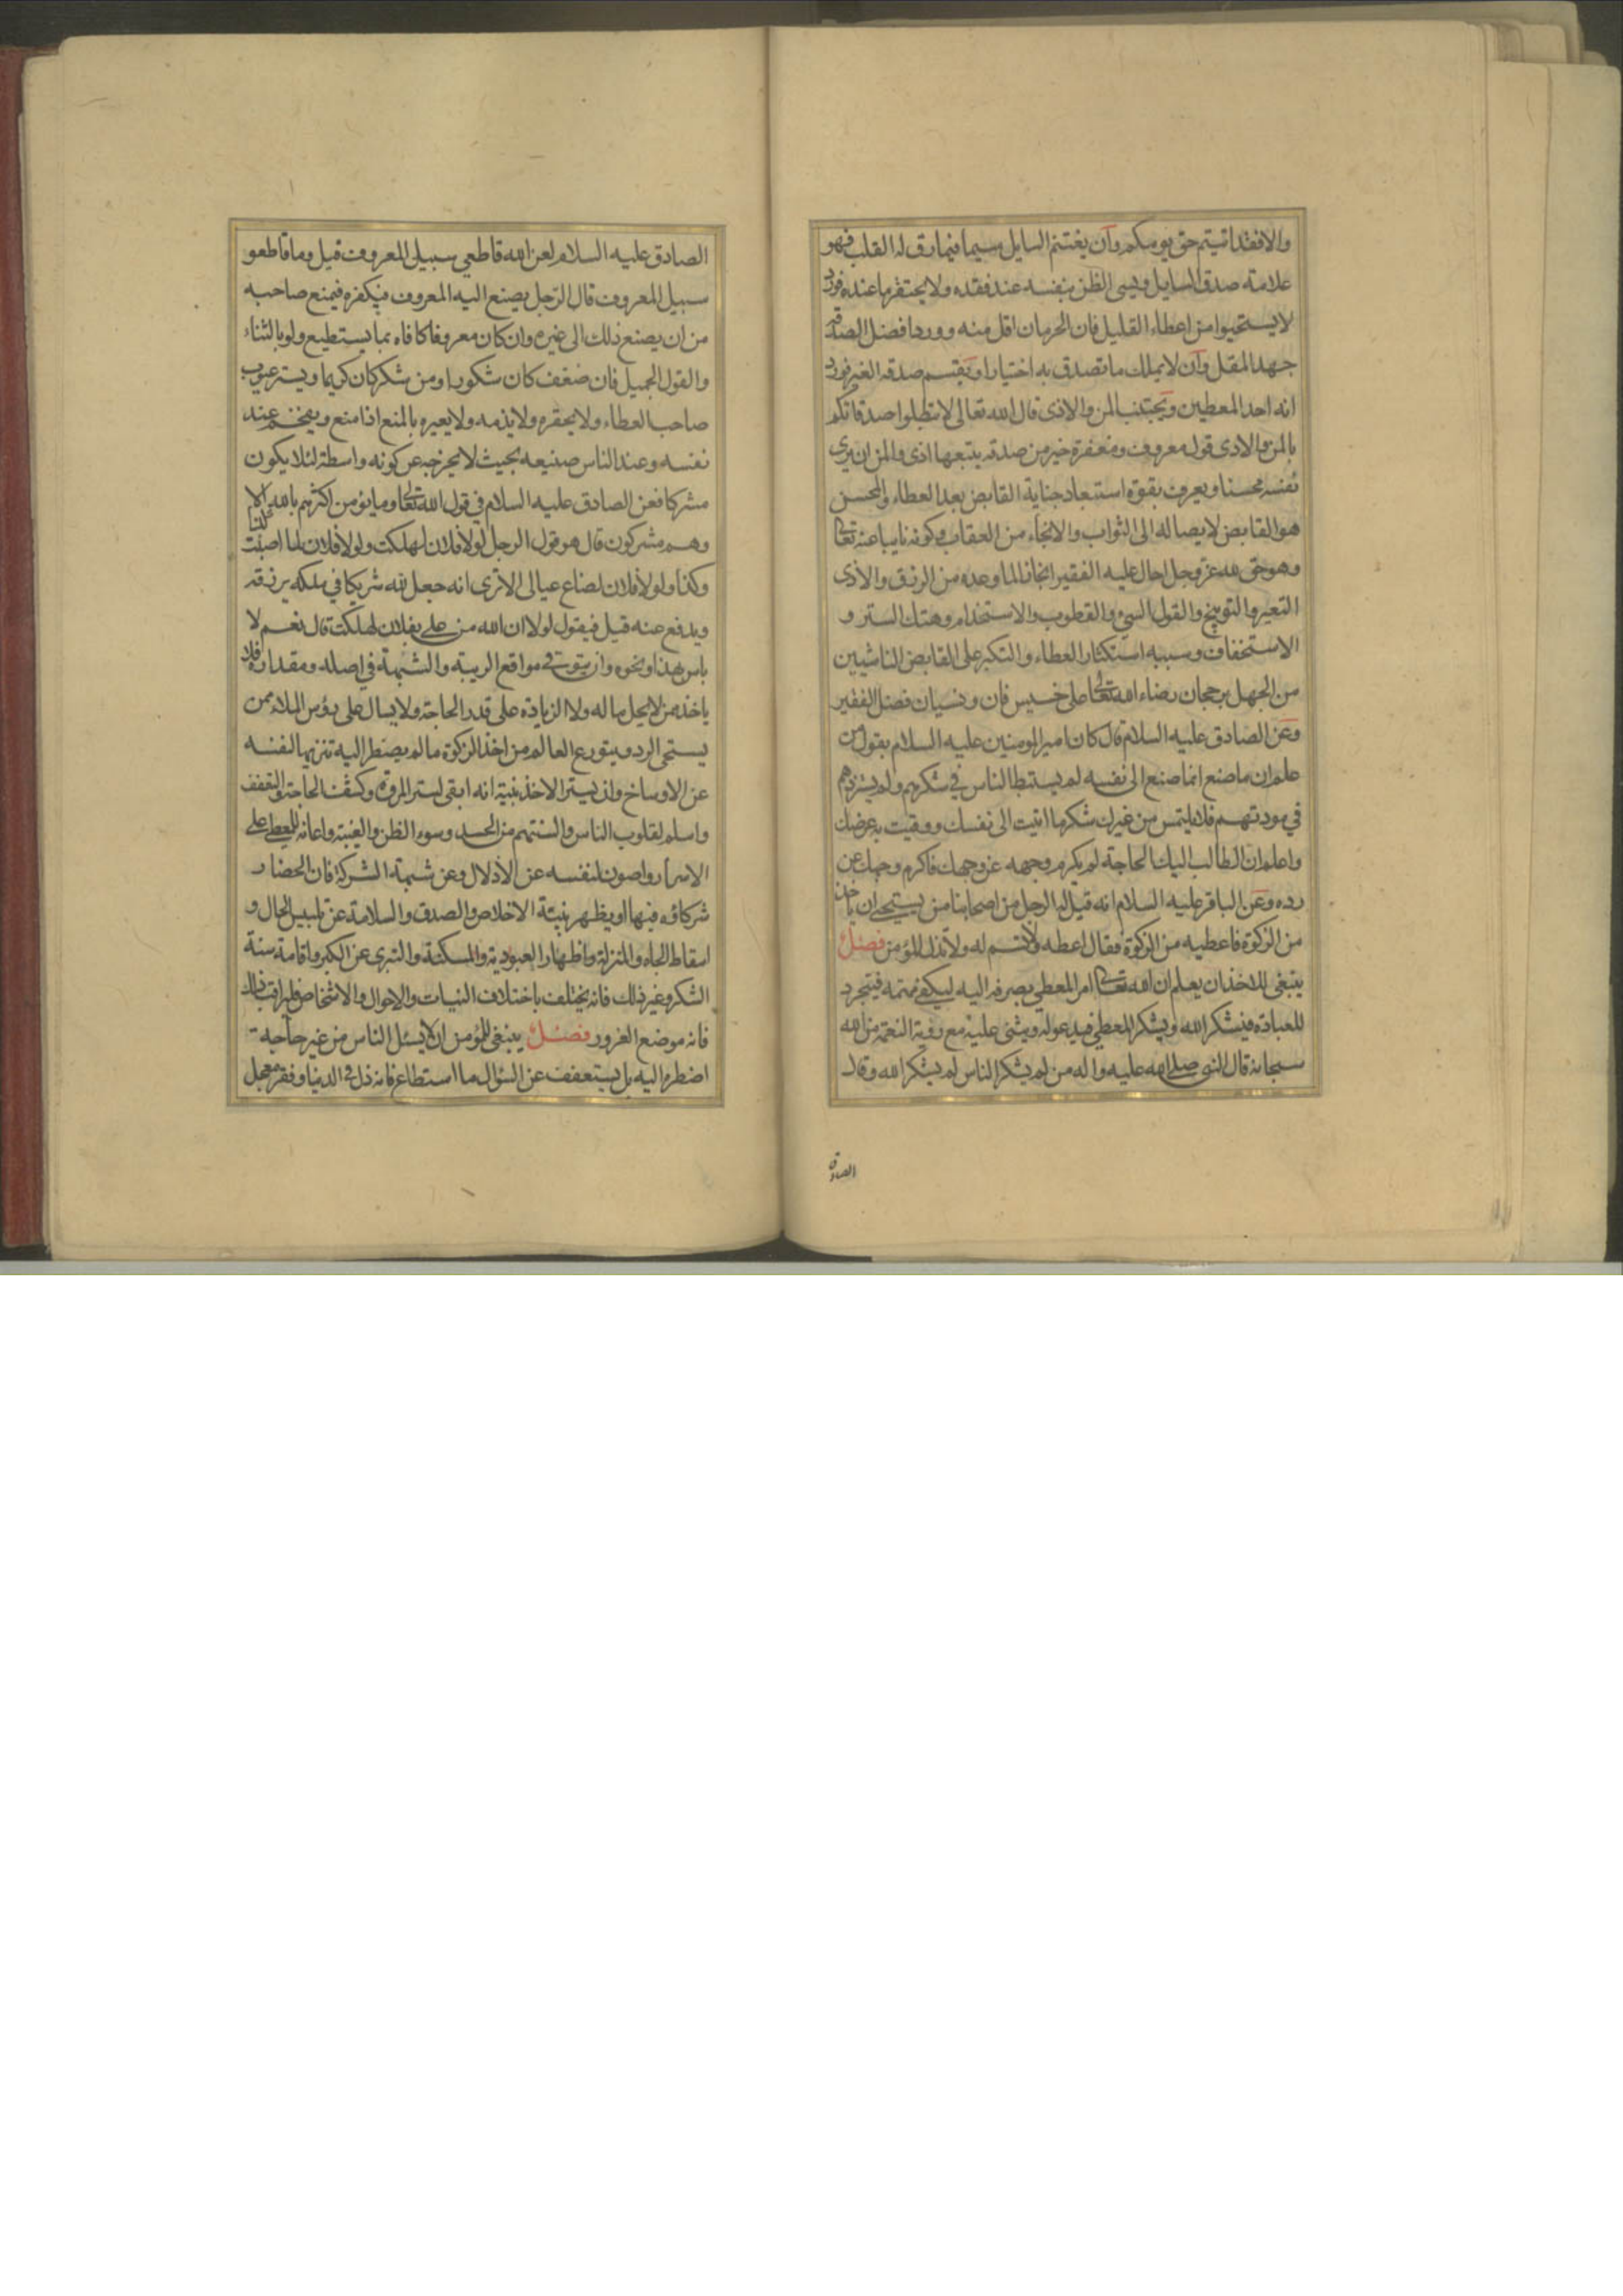 والا فقد اتيتم حق يومكم وان يغتنم السايل سيما فيما رق له القلب فهو
علامة صدق السايل ويسى الظن بنفسه عند فقده ولا يحتقر ما عنده فورد
لا يستحيوا من اعطاء القليل فان الحرمان اقل منه وورد افضل الصدقة
جهد المقل وان لا يملك ما تصدق به اختيارا ويقتسم صدقة الغير فورد
انه احد المعطين ويجتنب المن والاذى قال الله تعالى لا تبطلوا صدقاتكم
بالمن والاذى قول معروف ومغفرة خير من صدقة يتبعها اذى والمن ان يرى
نفسه محسنا ويعرف بقوة استبعاد جناية القابض بعد العطاء والمحسن
هو القابض لايصاله الى الثواب والانجاء من العقاب وكونه نايبا عنه تعالى
وهو حق لله عز وجل احال عليه الفقير انجازا لما وعده من الرزق والاذى
التعير والتوبيخ والقول السيئ والقطوب والاستخدام وهتك الستر و
الاستخفاف وسببه استكثار العطاء والتكبر على القابض الناشيين
من الجهل برجحان رضاء الله تعالى على خسيس فان ونسيان فضل الفقير
وعن الصادق عليه السلام قال كان امير المومنين عليه السلام يقول من
علم ان ما صنع انما صنع الى نفسه لم يستبط الناس في شكرهم ولم يستزدهم
في مودتهم فلا يلتمس من غيرك شكر ما اتيت الى نفسك ووقيت به عرضك
واعلم ان الطالب اليك الحاجة لم يكرم وجهه عن وجهك فاكرم وجهك عن
رده وعن الباقر عليه السلام انه قيل له الرجل من اصحابنا من يستحيى ان ياخذ
من الزكوة فاعطيه من الزكوة فقال اعطه ولا تسم له ولا تذل المؤمن فصل
ينبغى للاخذ ان يعلم ان الله تعالى امر المعطي بصرفه اليه ليكفى مهمه فيتجرد
للعبادة فيشكر الله ويشكر المعطي فيدعو له ويثنى عليه مع روية النعمة من الله
سبحانه قال النبى صلى الله عليه واله من لم يشكر الناس لم يشكر الله وقال
الصادق
الصادق عليه السلام لعن الله قاطعي سبيل المعروف قيل وما قاطعو
سبيل المعروف قال الرجل يصنع اليه المعروف فيكفره فيمنع صاحبه
من ان يصنع ذلك الى غيره وان كان معروفا كافاه بما يستطيع ولو بالثناء
والقول الجميل فان ضعف كان شكورا ومن شكر كان كريما ويستر عيوب
صاحب العطاء ولا يحقره ولا يذمه ولا يعيره بالمنع اذا منع ويفخم عند
نفسه وعند الناس صنيعه بحيث لا يخرجه عن كونه واسطة لئلا يكون
مشركا فعن الصادق عليه السلام في قول الله تعالى وما يؤمن اكثرهم بالله الا
وهم مشركون قال هو قول الرجل لولا فلان لهلكت ولولا فلان لما اصبت كذا
وكذا ولولا فلان لضاع عيالى الا ترى انه جعل لله شريكا في ملكه يرزقه
ويدفع عنه قيل فيقول لولا ان الله من علي بفلان لهلكت قال نعم لا
باس بهذا ونحوه وان يتوقى مواقع الريبة والشبهة في اصله ومقداره فلا
ياخذ من لا يحل ماله ولا الزيادة على قدر الحاجة ولا يسال على رؤس الملاء ممن
يستحى الرد ويتورع العالم من اخذ الزكوة ما لم يضطر اليه تنزيها لنفسه
عن الاوساخ وان يستر الاخذ بنية انه ابقى لستر المروة وكشف الحاجة والتعفف
واسلم لقلوب الناس والسنتهم من الحسد وسوء الظن والغيبة واعانة للمعطى على
الاسرار واصون لنفسه عن الاذلال وعن شبهة الشركة فان الحضار
شركاؤه فيها او يظهر بنية الاخلاص والصدق والسلامة عن تلبيس الحال و
اسقاط الجاه والمنزلة واظهار العبودية والمسكنة والتبرى عن الكبر واقامة سنة
الشكر وغير ذلك فانه يختلف باختلاف النيات والاحوال والاشخاص فليراقب ذلك
فانه موضع الغرور فصل ينبغى للمؤمن ان لا يسئل الناس من غير حاجة
اضطره اليه بل يستعفف عن السؤال ما استطاع فانه ذل فى الدنيا وفقر معجل